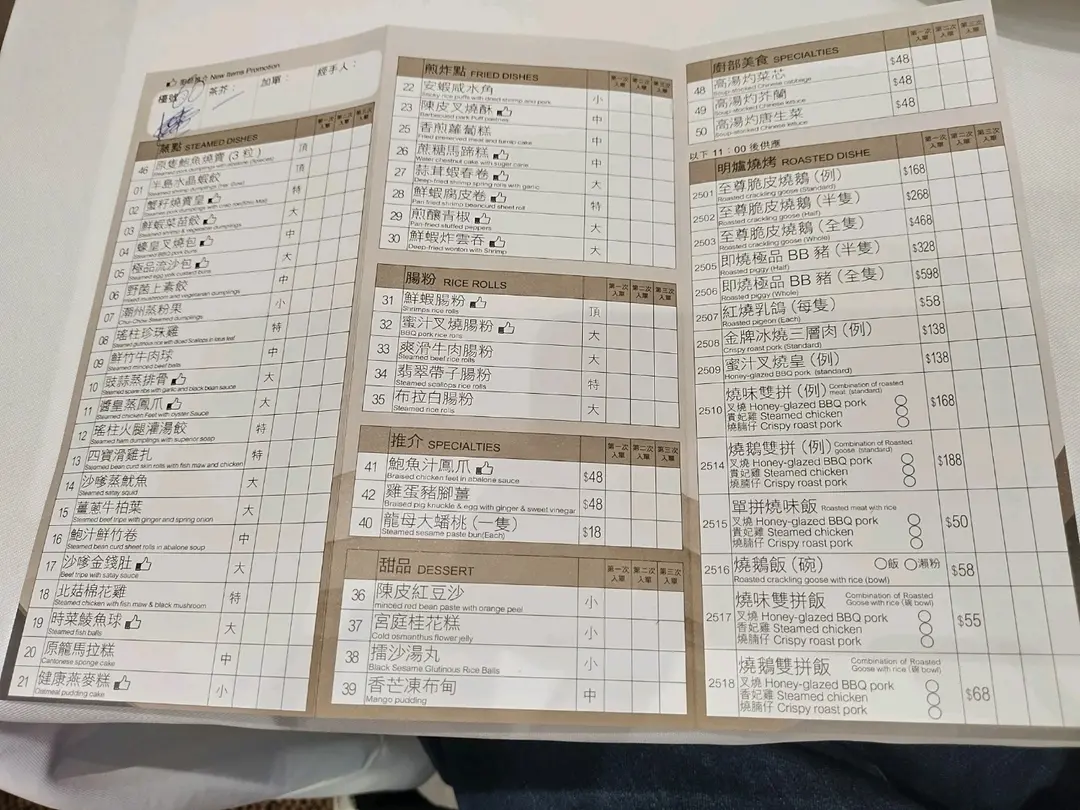 New Items Promotion
檯號 茶芥： 加單： 經手人：
蒸點 STEAMED DISHES 第一次入單 第二次入單 第三次入單
46 原隻鮑魚燒賣 (3 粒) 頂
01 半島水晶蝦餃 頂
Steamed shrimp dumplings (Har Gow)
02 蟹籽燒賣皇 特
03 鮮蝦菜苗餃 大
Steamed shrimp & vegetable dumplings
04 蠔皇叉燒包 中
Steamed BBQ pork buns
05 極品流沙包 大
Steamed egg yolk custard buns
06 野菌上素餃 中
Mixed mushroom and vegetarian dumplings
07 潮州蒸粉果 小
Chiu-Chow Steamed dumplings
08 瑤柱珍珠雞 特
Steamed glutinous rice with dried Scallops in lotus leaf
09 鮮竹牛肉球 中
Steamed minced beef balls
10 豉蒜蒸排骨 大
Steamed spare ribs with garlic and black bean sauce
11 醬皇蒸鳳爪 大
Steamed chicken Feet with oyster Sauce
12 瑤柱火腿灌湯餃 特
Steamed ham dumplings with superior soup
13 四寶滑雞扎 特
Steamed bean curd skin rolls with fish maw and chicken
14 沙嗲蒸魷魚 大
Steamed satay squid
15 薑蔥牛柏葉 大
Steamed beef tripe with ginger and spring onion
16 鮑汁鮮竹卷 中
Steamed bean curd sheet rolls in abalone soup
17 沙嗲金錢肚 大
Beef tripe with satay sauce
18 北菇棉花雞 特
Steamed chicken with fish maw & black mushroom
19 時菜鯪魚球 大
Steamed fish balls
20 原籠馬拉糕 中
Cantonese sponge cake
21 健康燕麥糕 小
Oatmeal pudding cake
煎炸點 FRIED DISHES 第一次入單 第二次入單 第三次入單
22 安蝦咸水角 小
23 陳皮叉燒酥 中
Barbecued pork Puff pastries
25 香煎蘿蔔糕 中
Fried preserved meat and turnip cake
26 蔗糖馬蹄糕 中
Water chestnut cake with sugar cane
27 蒜茸蝦春卷 大
Deep-fried shrimp spring rolls with garlic
28 鮮蝦腐皮卷 特
Pan fried shrimp beancurd sheet roll
29 煎釀青椒 大
Pan-fried stuffed peppers
30 鮮蝦炸雲吞 大
Deep-fried wonton with Shrimp
腸粉 RICE ROLLS 第一次入單 第二次入單 第三次入單
31 鮮蝦腸粉 頂
Shrimps rice rolls
32 蜜汁叉燒腸粉 大
BBQ pork rice rolls
33 爽滑牛肉腸粉 大
Steamed beef rice rolls
34 翡翠帶子腸粉 特
Steamed scallops rice rolls
35 布拉白腸粉 大
Steamed rice rolls
推介 SPECIALTIES 第一次入單 第二次入單 第三次入單
41 鮑魚汁鳳爪 $48
Braised chicken feet in abalone sauce
42 雞蛋豬腳薑 $48
Braised pig knuckle & egg with ginger & sweet vinegar
40 龍母大蟠桃 (一隻) $18
Steamed sesame paste bun(Each)
甜品 DESSERT 第一次入單 第二次入單 第三次入單
36 陳皮紅豆沙 小
minced red bean paste with orange peel
37 宮庭桂花糕 小
Cold osmanthus flower jelly
38 擂沙湯丸 小
Black Sesame Glutinous Rice Balls
39 香芒凍布甸 中
Mango pudding
廚部美食 SPECIALTIES 第一次入單 第二次入單 第三次入單
48 高湯灼菜芯 $48
49 高湯灼芥蘭 $48
Soup-stocked Chinese lettuce
50 高湯灼唐生菜 $48
Soup-stocked Chinese lettuce
以下 11：00 後供應
明爐燒烤 ROASTED DISHE 第一次入單 第二次入單 第三次入單
2501 至尊脆皮燒鵝 (例) $168
Roasted crackling goose (Standard)
2502 至尊脆皮燒鵝 (半隻) $268
Roasted crackling goose (Half)
2503 至尊脆皮燒鵝 (全隻) $468
Roasted crackling goose (Whole)
2505 即燒極品 BB 豬 (半隻) $328
Roasted piggy (Half)
2506 即燒極品 BB 豬 (全隻) $598
Roasted piggy (Whole)
2507 紅燒乳鴿 (每隻) $58
Roasted pigeon (Each)
2508 金牌冰燒三層肉 (例) $138
Crispy roast pork (Standard)
2509 蜜汁叉燒皇 (例) $138
Honey-glazed BBQ pork (standard)
2510 燒味雙拼 (例) Combination of roasted meat (standard) $168
叉燒 Honey-glazed BBQ pork
貴妃雞 Steamed chicken
燒腩仔 Crispy roast pork
2514 燒鵝雙拼 (例) Combination of Roasted goose (standard) $188
叉燒 Honey-glazed BBQ pork
貴妃雞 Steamed chicken
燒腩仔 Crispy roast pork
2515 單拼燒味飯 Roasted meat with rice $50
叉燒 Honey-glazed BBQ pork
貴妃雞 Steamed chicken
燒腩仔 Crispy roast pork
2516 燒鵝飯 (碗) 飯 瀨粉 $58
Roasted crackling goose with rice (bowl)
2517 燒味雙拼飯 Combination of Roasted Goose with rice (碗 bowl) $55
叉燒 Honey-glazed BBQ pork
香妃雞 Steamed chicken
燒腩仔 Crispy roast pork
2518 燒鵝雙拼飯 Combination of Roasted Goose with rice (碗 bowl) $68
叉燒 Honey-glazed BBQ pork
香妃雞 Steamed chicken
燒腩仔 Crispy roast pork